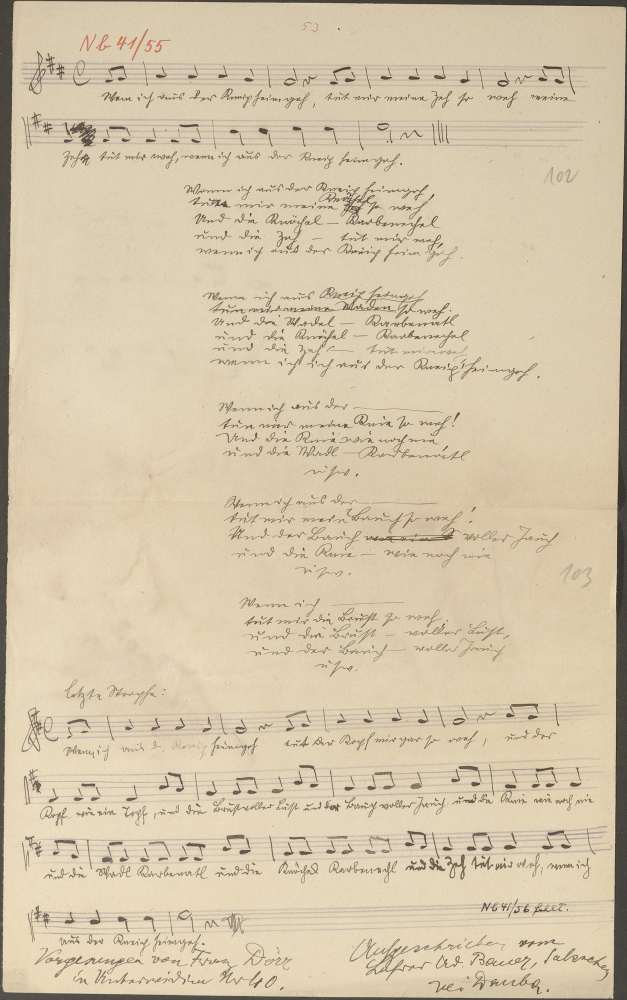 53
Nb 41/55
Wenn ich aus der Kneip heimgeh, tut mir meine Zeh so weh meine
Zeh tut mir weh, wenn ich aus der Kneip heimgeh.
102
Wenn ich aus der Kneip heimgeh,
tut mir meine Knöchel so weh
Und die Knöchel — Karbenechel
und die Zeh — tut mir weh,
wenn ich aus der Kneip heim geh.
Wenn ich aus Kneip heimgeh
tun mir meine Waden so weh.
Und die Wadel — Karbenatl
und die Knöchel — Karbenechel
und die Zeh — tut mir weh
wenn ich aus der Kneip heimgeh.
Wenn ich aus der ———
tun mir meine Knie so weh!
Und die Knie wie noch nie
und die Wadl — Karbenatl
usw.
Wenn ich aus der ———
tut mir mein Bauch so weh!
Und der Bauch voller Jauch
und die Knie — wie noch nie
usw.
103
Wenn ich ———
tut mir die Brust so weh
und die Brust — voller Lust,
und der Bauch — voller Jauch
usw.
letzte Strophe:
Wenn ich aus d. Kneip heimgeh tut der Kopf mir gar so weh, und der
Kopf wie ein Topf, und die Brust voller Lust und der Bauch voller Jauch und die Knie wie noch nie
und die Wadl Karbenatl und die Knöchel Karbenechl und die Zeh tut mir weh, wenn ich
aus der Kneip heimgeh.
Nb 41/56 fehlt.
Vorgesungen von Franz Dörr
in Unterwidim Nr 40.
Aufgeschrieben vom
Lehrer Ad. Bauer,
bei Dauba.